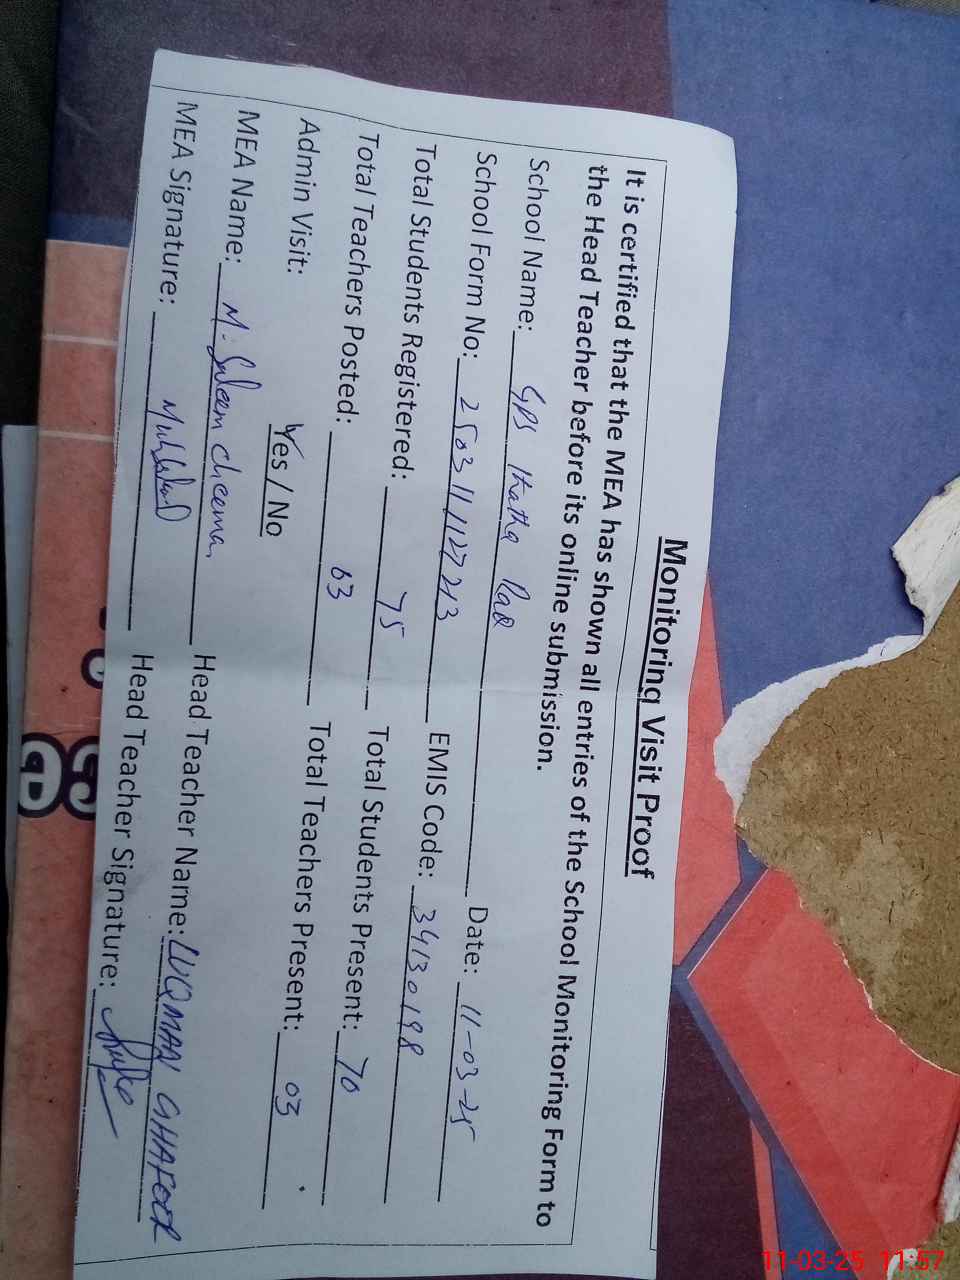 Monitoring Visit Proof
It is certified that the MEA has shown all entries of the School Monitoring Form to
the Head Teacher before its online submission.
School Name: GPS Thatha Date: 11-03-25
School Form No: 25031127213 EMIS Code: 34130198
Total Students Registered: 75 Total Students Present: 70
Total Teachers Posted: 03 Total Teachers Present: 03
Admin Visit: Yes / No
MEA Name: M. Saleem Cheema Head Teacher Name: LUQMAN GHAFOOR
MEA Signature: Head Teacher Signature:
11-03-25 11:57